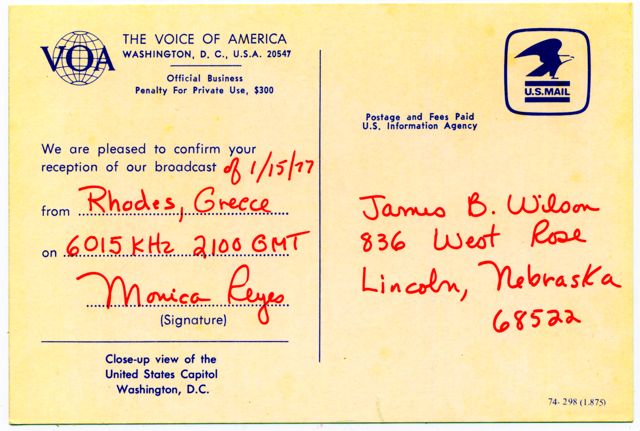 VOA
THE VOICE OF AMERICA
WASHINGTON, D. C., U.S.A. 20547
Official Business
Penalty For Private Use, $300
U.S.MAIL
Postage and Fees Paid
U.S. Information Agency
We are pleased to confirm your
reception of our broadcast of 1/15/77
from Rhodes, Greece
on 6015 KHz 2100 GMT
Monica Reyes
(Signature)
Close-up view of the
United States Capitol
Washington, D.C.
James B. Wilson
836 West Rose
Lincoln, Nebraska
68522
74-298 (1.875)